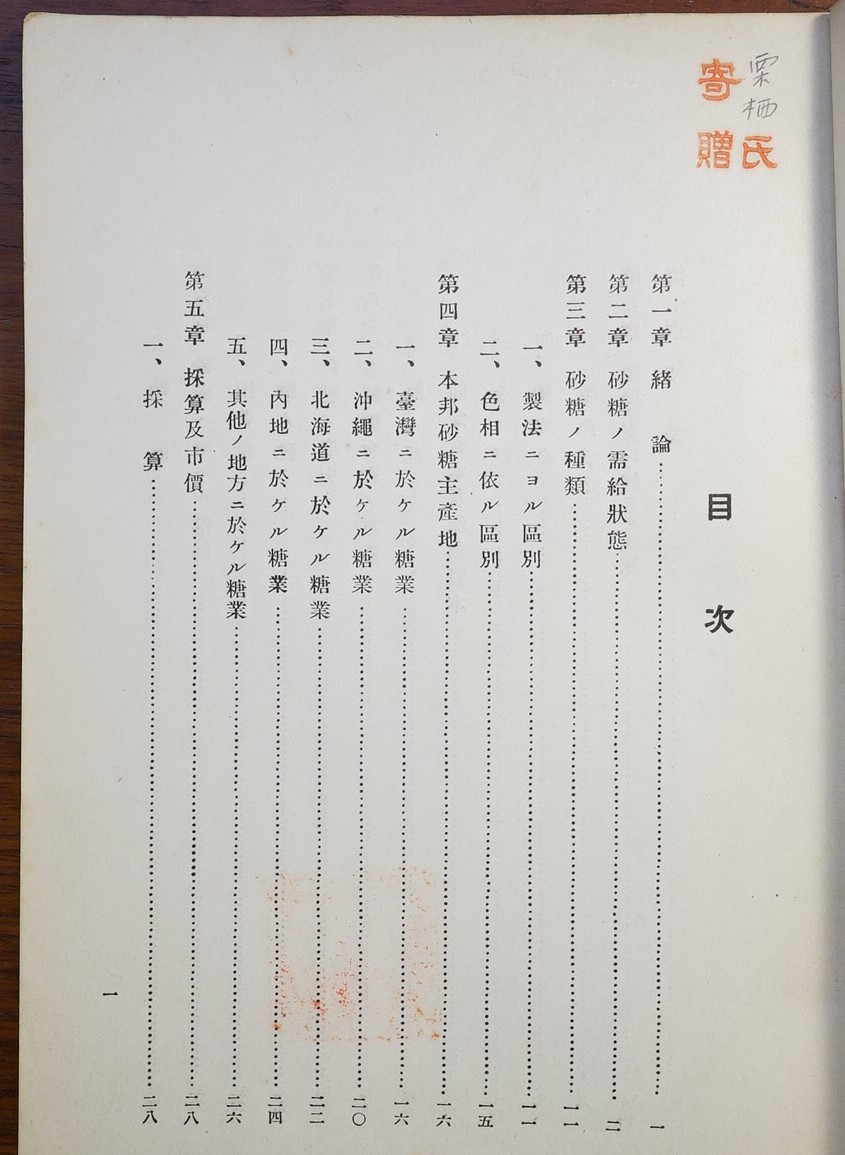 栗栖氏
寄贈
目次
第一章 緒論…………一
第二章 砂糖ノ需給狀態…………二
第三章 砂糖ノ種類…………一一
一、製法ニヨル區別…………一一
二、色相ニ依ル區別…………一五
第四章 本邦砂糖主產地…………一六
一、臺灣ニ於ケル糖業…………一六
二、沖繩ニ於ケル糖業…………二〇
三、北海道ニ於ケル糖業…………二二
四、內地ニ於ケル糖業…………二四
五、其他ノ地方ニ於ケル糖業…………二六
第五章 採算及市價…………二八
一、採算…………二八
一